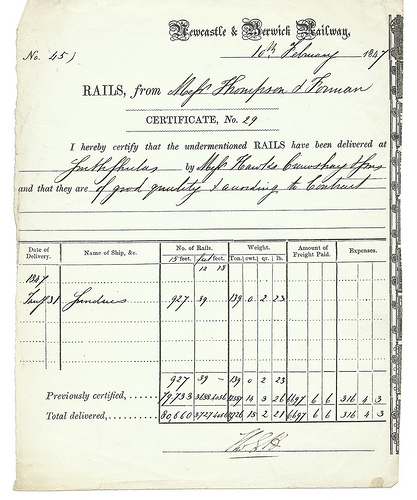 Newcastle & Berwick Railway,
No. 451
10th February 1847
RAILS, from Messrs Thompson & Forman
CERTIFICATE, No. 29
I hereby certify that the undermentioned RAILS have been delivered at
South Shields by Messrs Hawks Crawshay & Sons
and that they are of good quality & according to Contract
Date of Delivery. Name of Ship, &c. No. of Rails. Weight. Amount of Freight Paid. Expenses.
15 feet. feet. Ton. cwt. qr. lb.
12 18
1847
Jany 31 Sundries 927 39 139 0 2 23
927 39 – 139 0 2 23
Previously certified, 79,733 3688 14 3 26 6697 6 6 316 4 3
Total delivered, 80,660 3727 15 2 21 6697 6 6 316 4 3